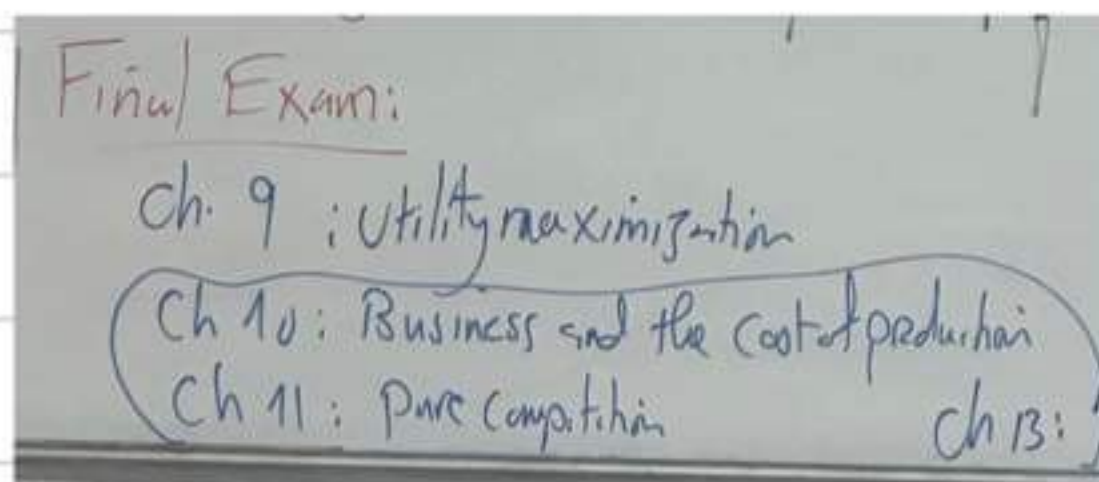 Final Exam:
Ch. 9 : Utility maximization
Ch 10: Business and the cost of production
Ch 11: Pure Competition Ch 13: